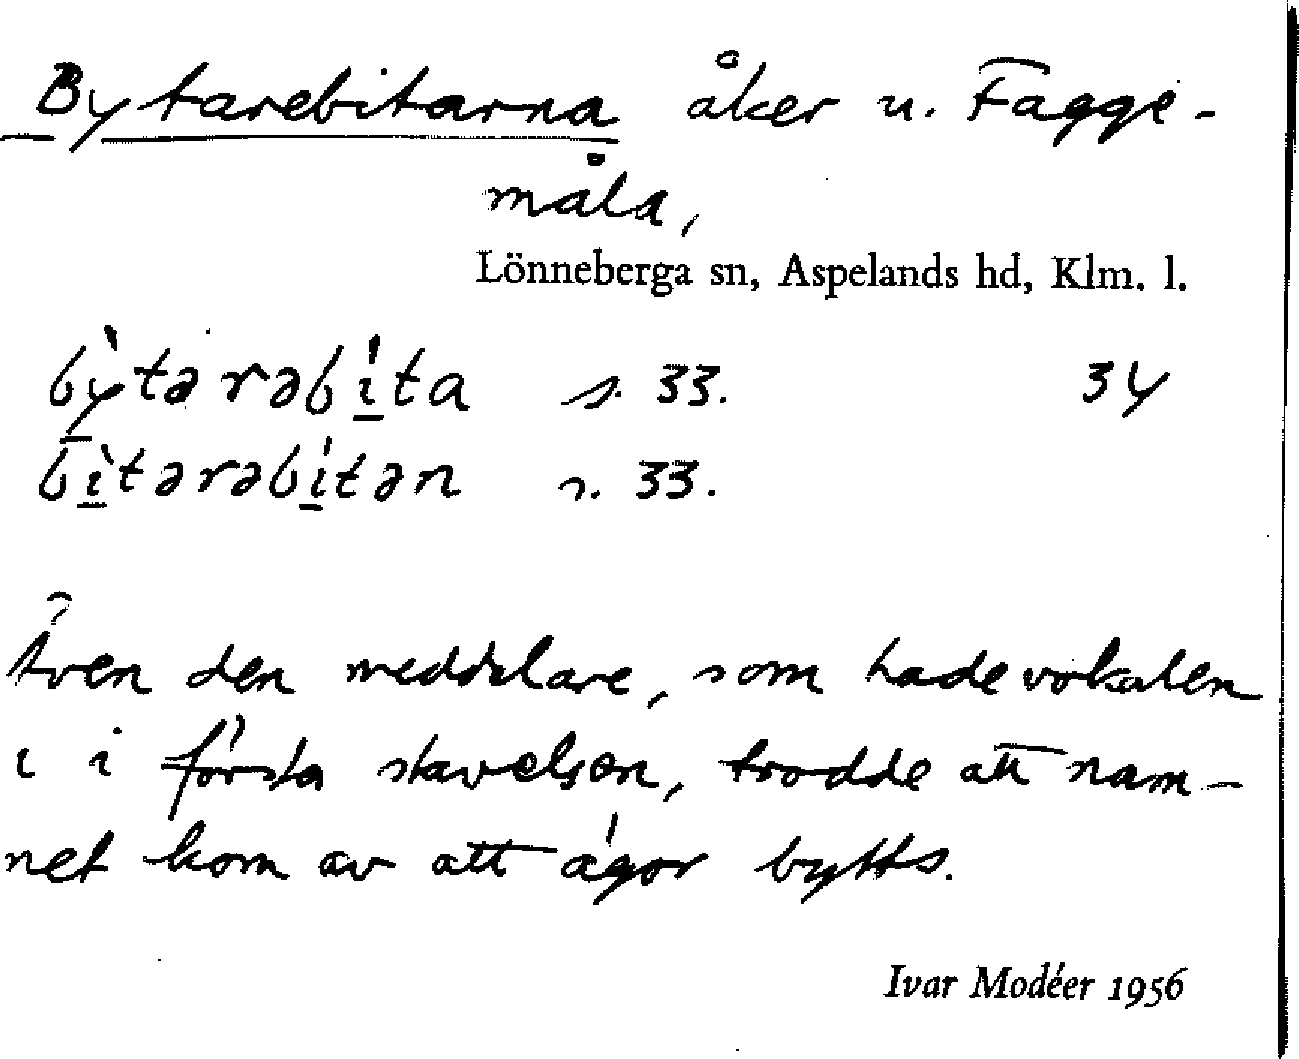 Bytarebitarna åker u. Fagge-
måla,
Lönneberga sn, Aspelands hd, Klm. l.
bỳtərəbı̍ta s. 33. 34
bı̀tərəbı̍tən s. 33.
Även den meddelare, som hade vokalen
ı i första stavelsen, trodde att nam-
net kom av att ägor bytts.
Ivar Modéer 1956